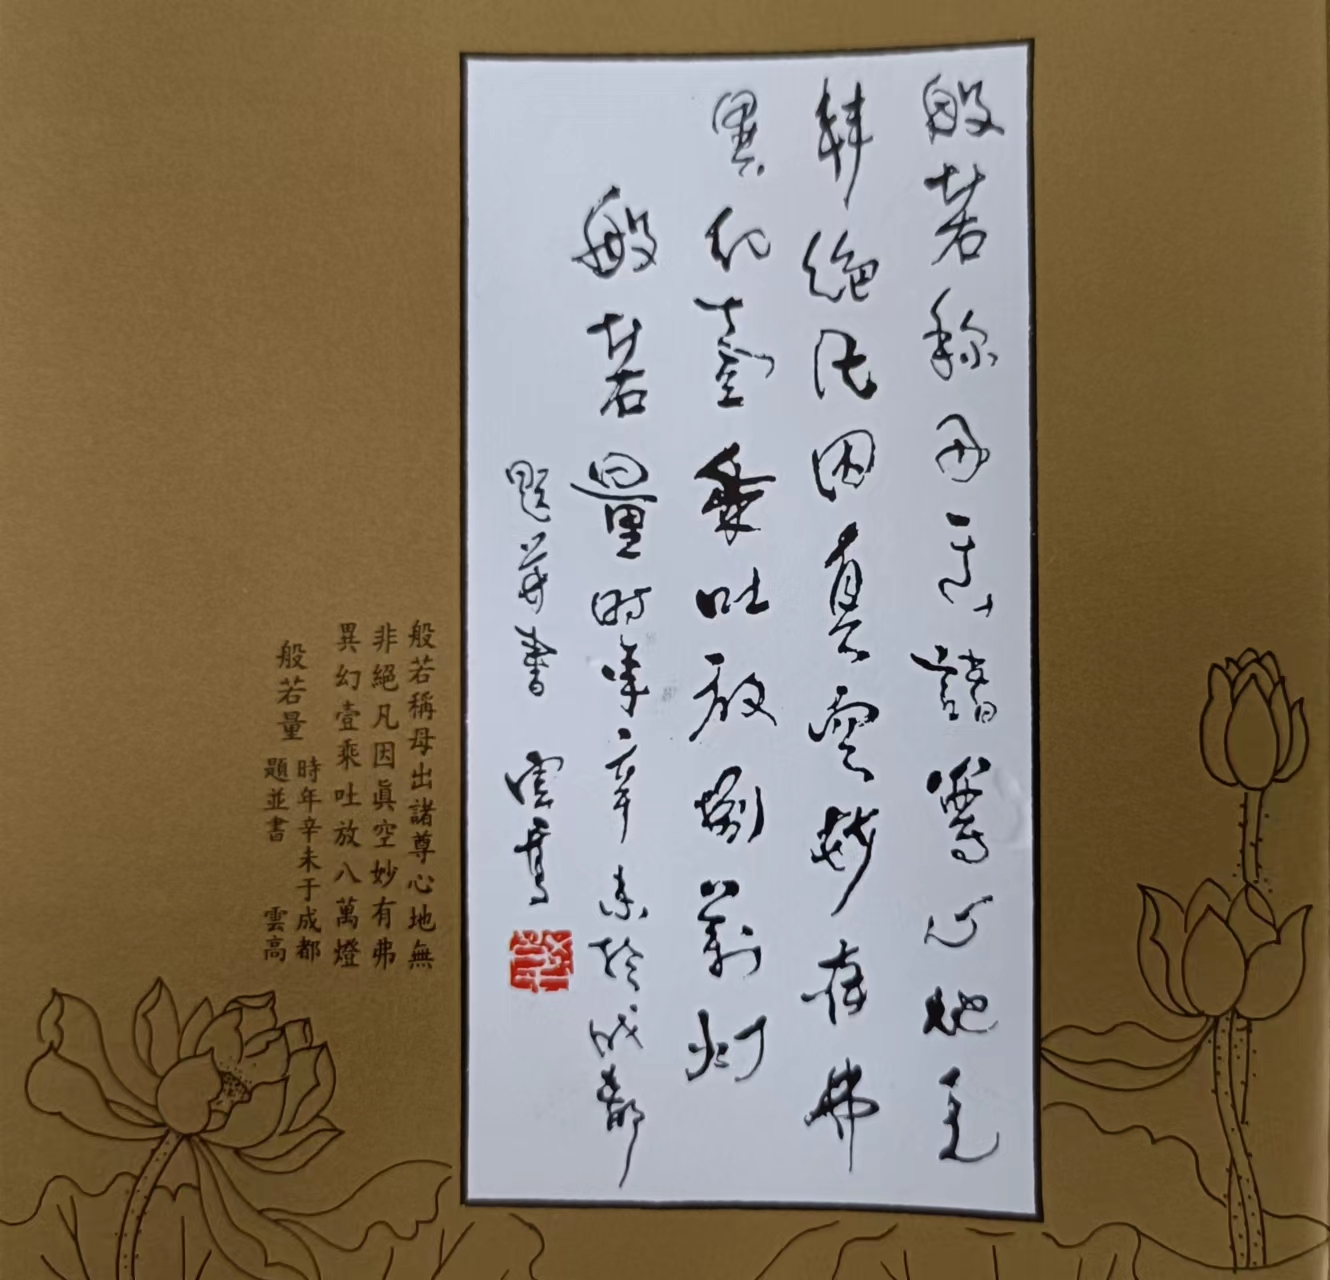 般若称母出諸尊心地无
非絶凡因真空妙有弗
異幻壹乘吐放捌萬灯
般若量时年辛未於成都
題並書 雲高
般若稱母出諸尊心地無
非絕凡因眞空妙有弗
異幻壹乘吐放八萬燈
般若量
時年辛未于成都
題並書 雲高